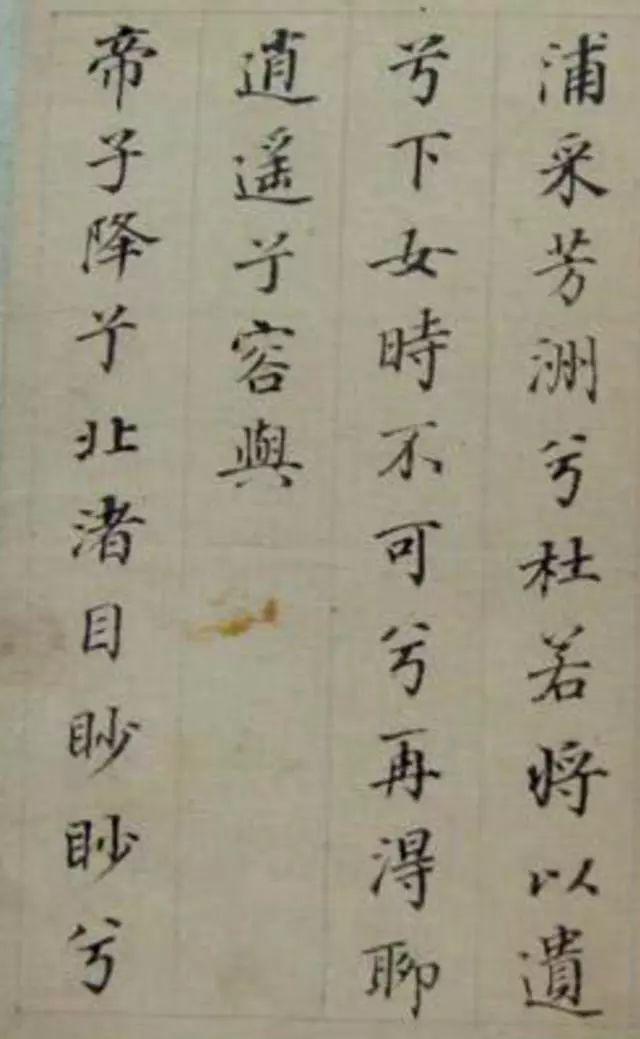 浦采芳洲兮杜若将以遺
兮下女時不可兮再淂聊
逍遥兮容與
帝子降兮北渚目眇眇兮